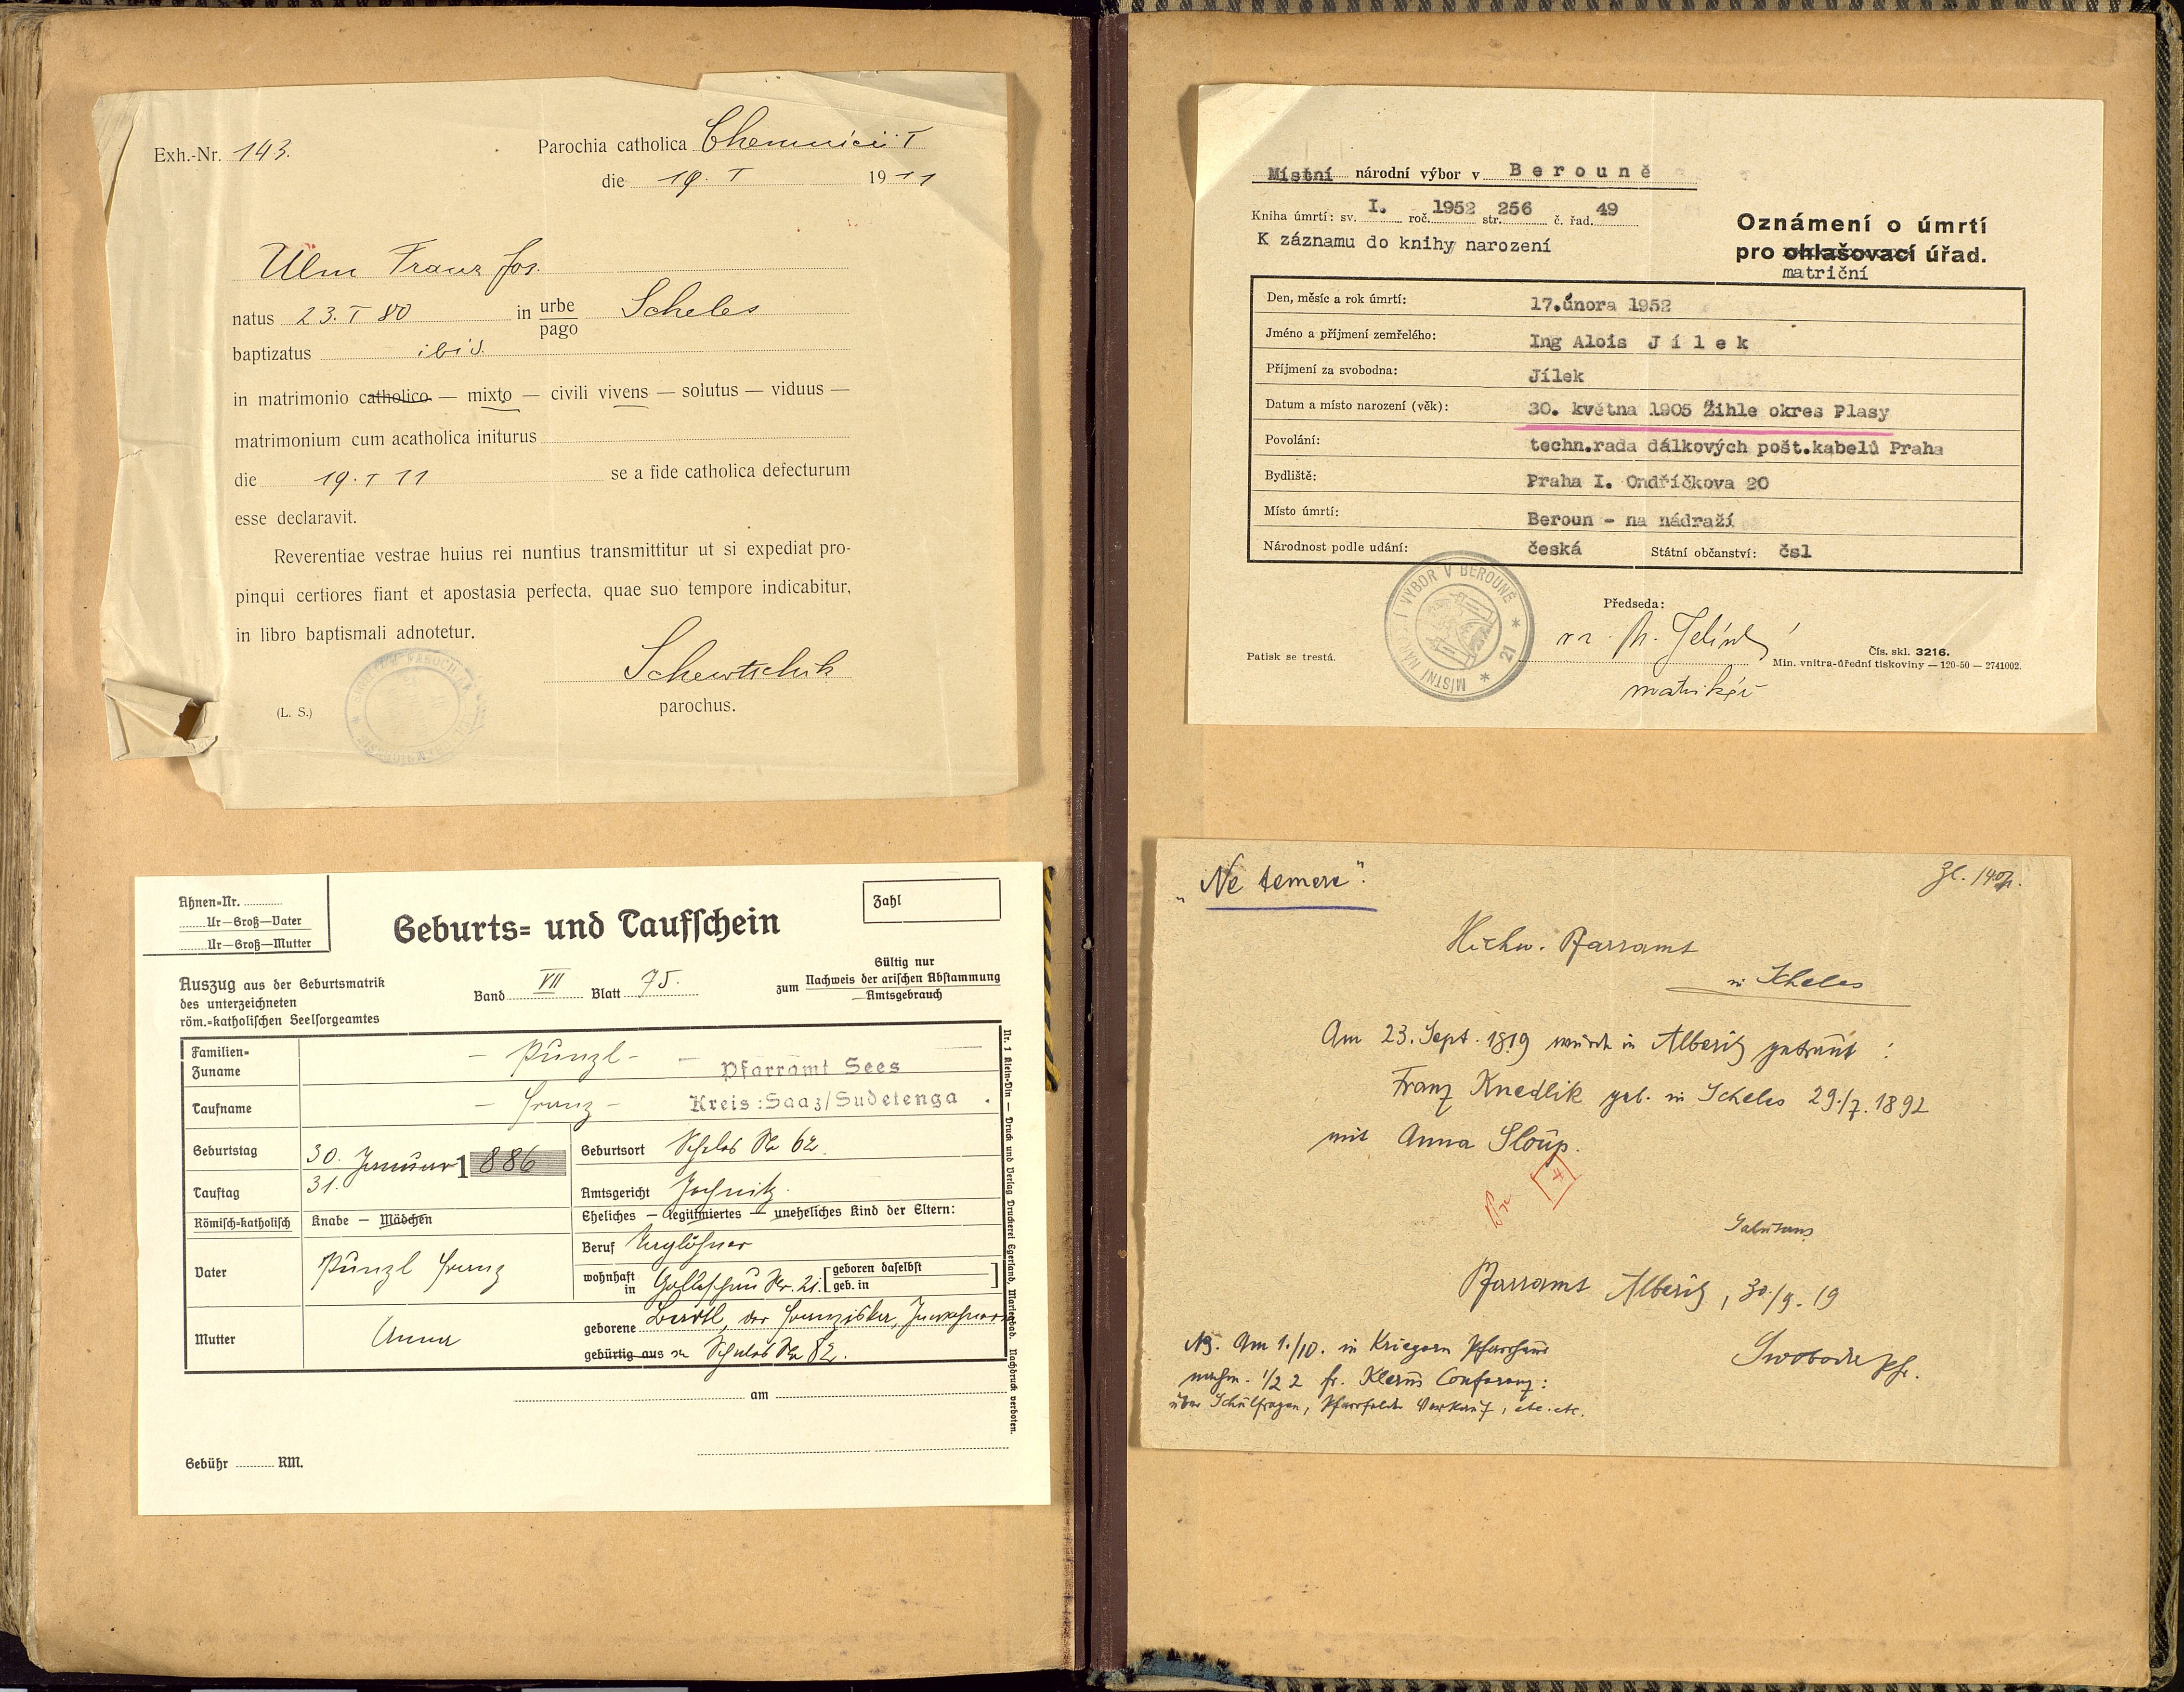 Exh.-Nr. 143.
Parochia catholica Chemnicii I
die 19. I 1911
Ulm Franz Jos.
natus 23. I 80 in urbe pago Scheles
baptizatus ibid.
in matrimonio catholico — mixto — civili vivens — solutus — viduus —
matrimonium cum acatholica initurus
die 19. I 11 se a fide catholica defecturum
esse declaravit.
Reverentiae vestrae huius rei nuntius transmittitur ut si expediat pro-
pinqui certiores fiant et apostasia perfecta, quae suo tempore indicabitur,
in libro baptismali adnotetur.
parochus.
(L. S.)
Ahnen-Nr.
Ur—Groß—Vater
Ur—Groß—Mutter
Geburts- und Taufschein
Zahl
Auszug aus der Geburtsmatrik
des unterzeichneten
röm.-katholischen Seelsorgeamtes
Band VII Blatt 75.
Gültig nur
zum Nachweis der arischen Abstammung
Amtsgebrauch
Familien-
Zuname
- Punzl -
Pfarramt Sees
Taufname - Franz -
Kreis:Saaz/Sudetenga
Geburtstag 30. Januar 1886
Geburtsort Scheles Nr 62.
Tauftag 31.
Amtsgericht Jechnitz.
Römisch-katholisch Knabe — Mädchen
Eheliches — legitimiertes — uneheliches Kind der Eltern:
Vater Punzl Franz
Beruf
wohnhaft in Nr. 21. [geboren daselbst
geb. in ]
Mutter Anna
geborene der Franziska,
gebürtig aus Scheles Nr 82.
am
Gebühr RM.
Nr. 1 Klein-Din — Druck und Verlag Druckerei Egerland, Marienbad. Nachdruck verboten.
Místní národní výbor v Berouně
Kniha úmrtí: sv. I. roč. 1952 str. 256 č. řad. 49
K záznamu do knihy narození
Oznámení o úmrtí
pro ohlašovací úřad.
matriční
Den, měsíc a rok úmrtí: 17.února 1952
Jméno a příjmení zemřelého: Ing Alois Jílek
Příjmení za svobodna: Jílek
Datum a místo narození (věk): 30. května 1905 Žihle okres Plasy
Povolání: techn.rada dálkových pošt.kabelů Praha
Bydliště: Praha I. Ondříčkova 20
Místo úmrtí: Beroun - na nádraží
Národnost podle udání: česká Státní občanství: čsl
MÍSTNÍ NÁRODNÍ VÝBOR V BEROUNĚ * 21 *
Předseda:
matrikář
Patisk se trestá.
Čís. skl. 3216.
Min. vnitra-úřední tiskoviny — 120-50 — 2741002.
„Ne temere".
Hochw. Pfarramt
in Scheles
Am 23. Sept. 1819 wurde in Alberitz getraut:
Franz Knedlik geb. in Scheles 29./7. 1892
mit Anna Sloup.
Salutans
Pfarramt Alberitz, 30/9. 19
Swoboda Pfr.
NB. Am 1./10. in Kriegern Pfarrhaus
nachm. 1/2 2 Klerus Conferenz:
über Schulfragen, Pfarrfelder Verkauf, etc. etc.